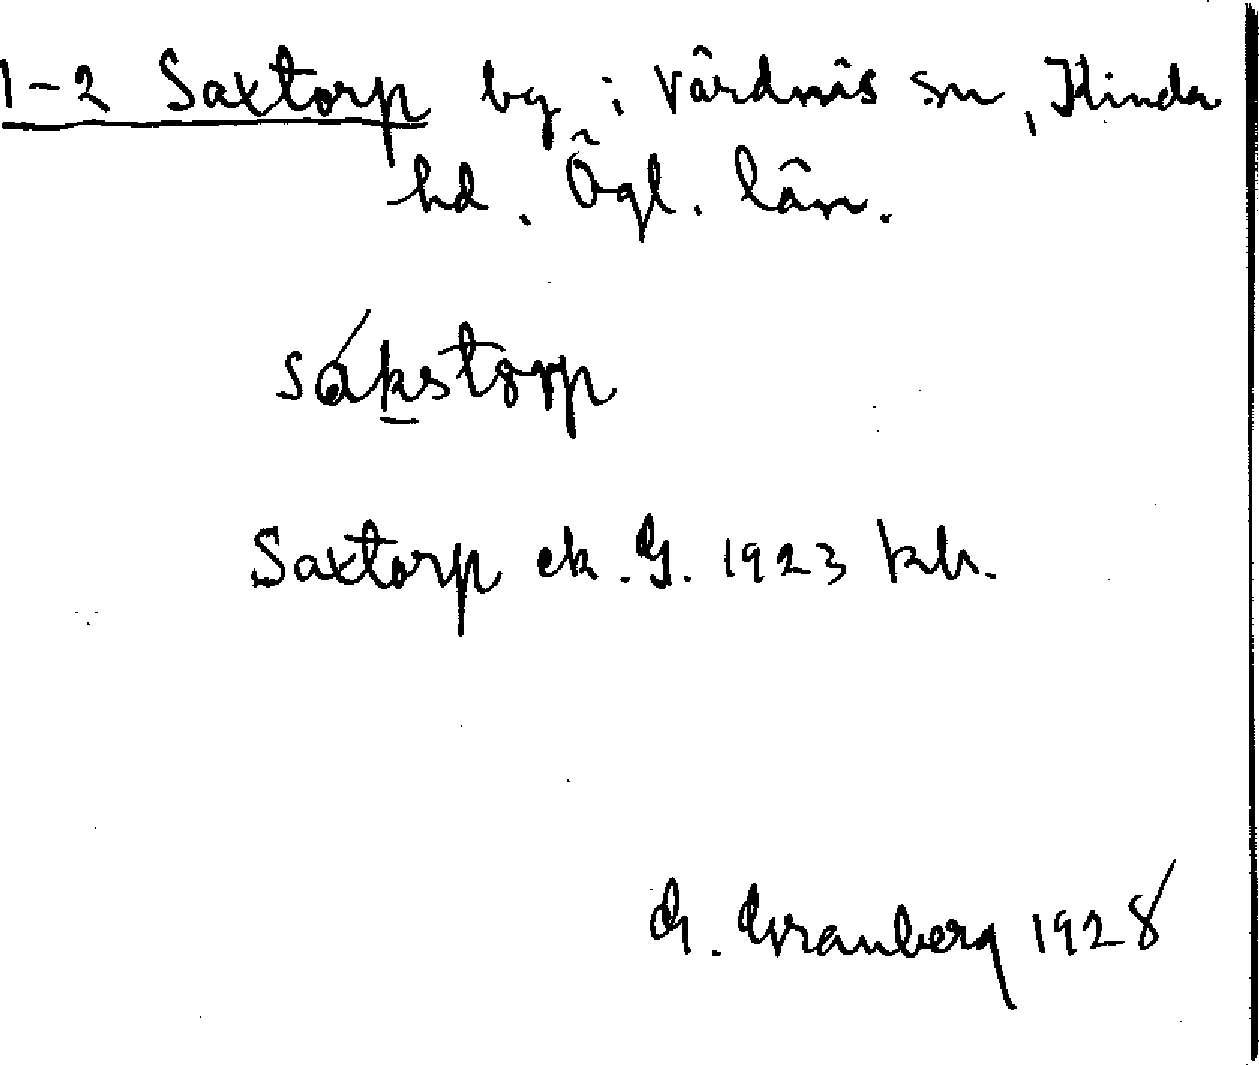 1-2 Saxtorp by i Vårdnäs sn, Kinda
hd. Ögl. län.
sákstorp
Saxtorp ek. G. 1923 kh.
G. Granberg 1928